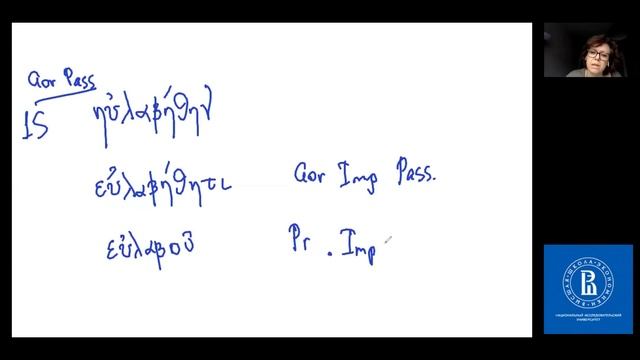 aor Pass
1S ηὐλαβήθην
εὐλαβήθητι aor Imp Pass.
εὐλαβοῦ Pr. Imp
ВЫСШАЯ ШКОЛА ЭКОНОМИКИ
НАЦИОНАЛЬНЫЙ ИССЛЕДОВАТЕЛЬСКИЙ
УНИВЕРСИТЕТ